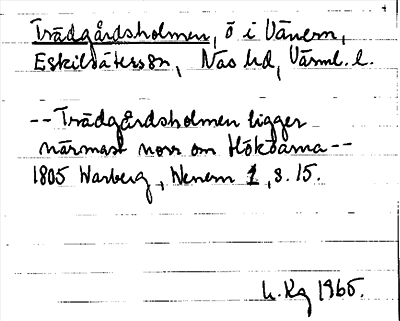 Trädgårdsholmen, ö i Vänern,
Eskilsäters sn, Näs hd, Värml. l.
-- Trädgårdsholmen ligger
närmast norr om Hököarna --
1805 Warberg, Wenern 1, s. 15.
1965.